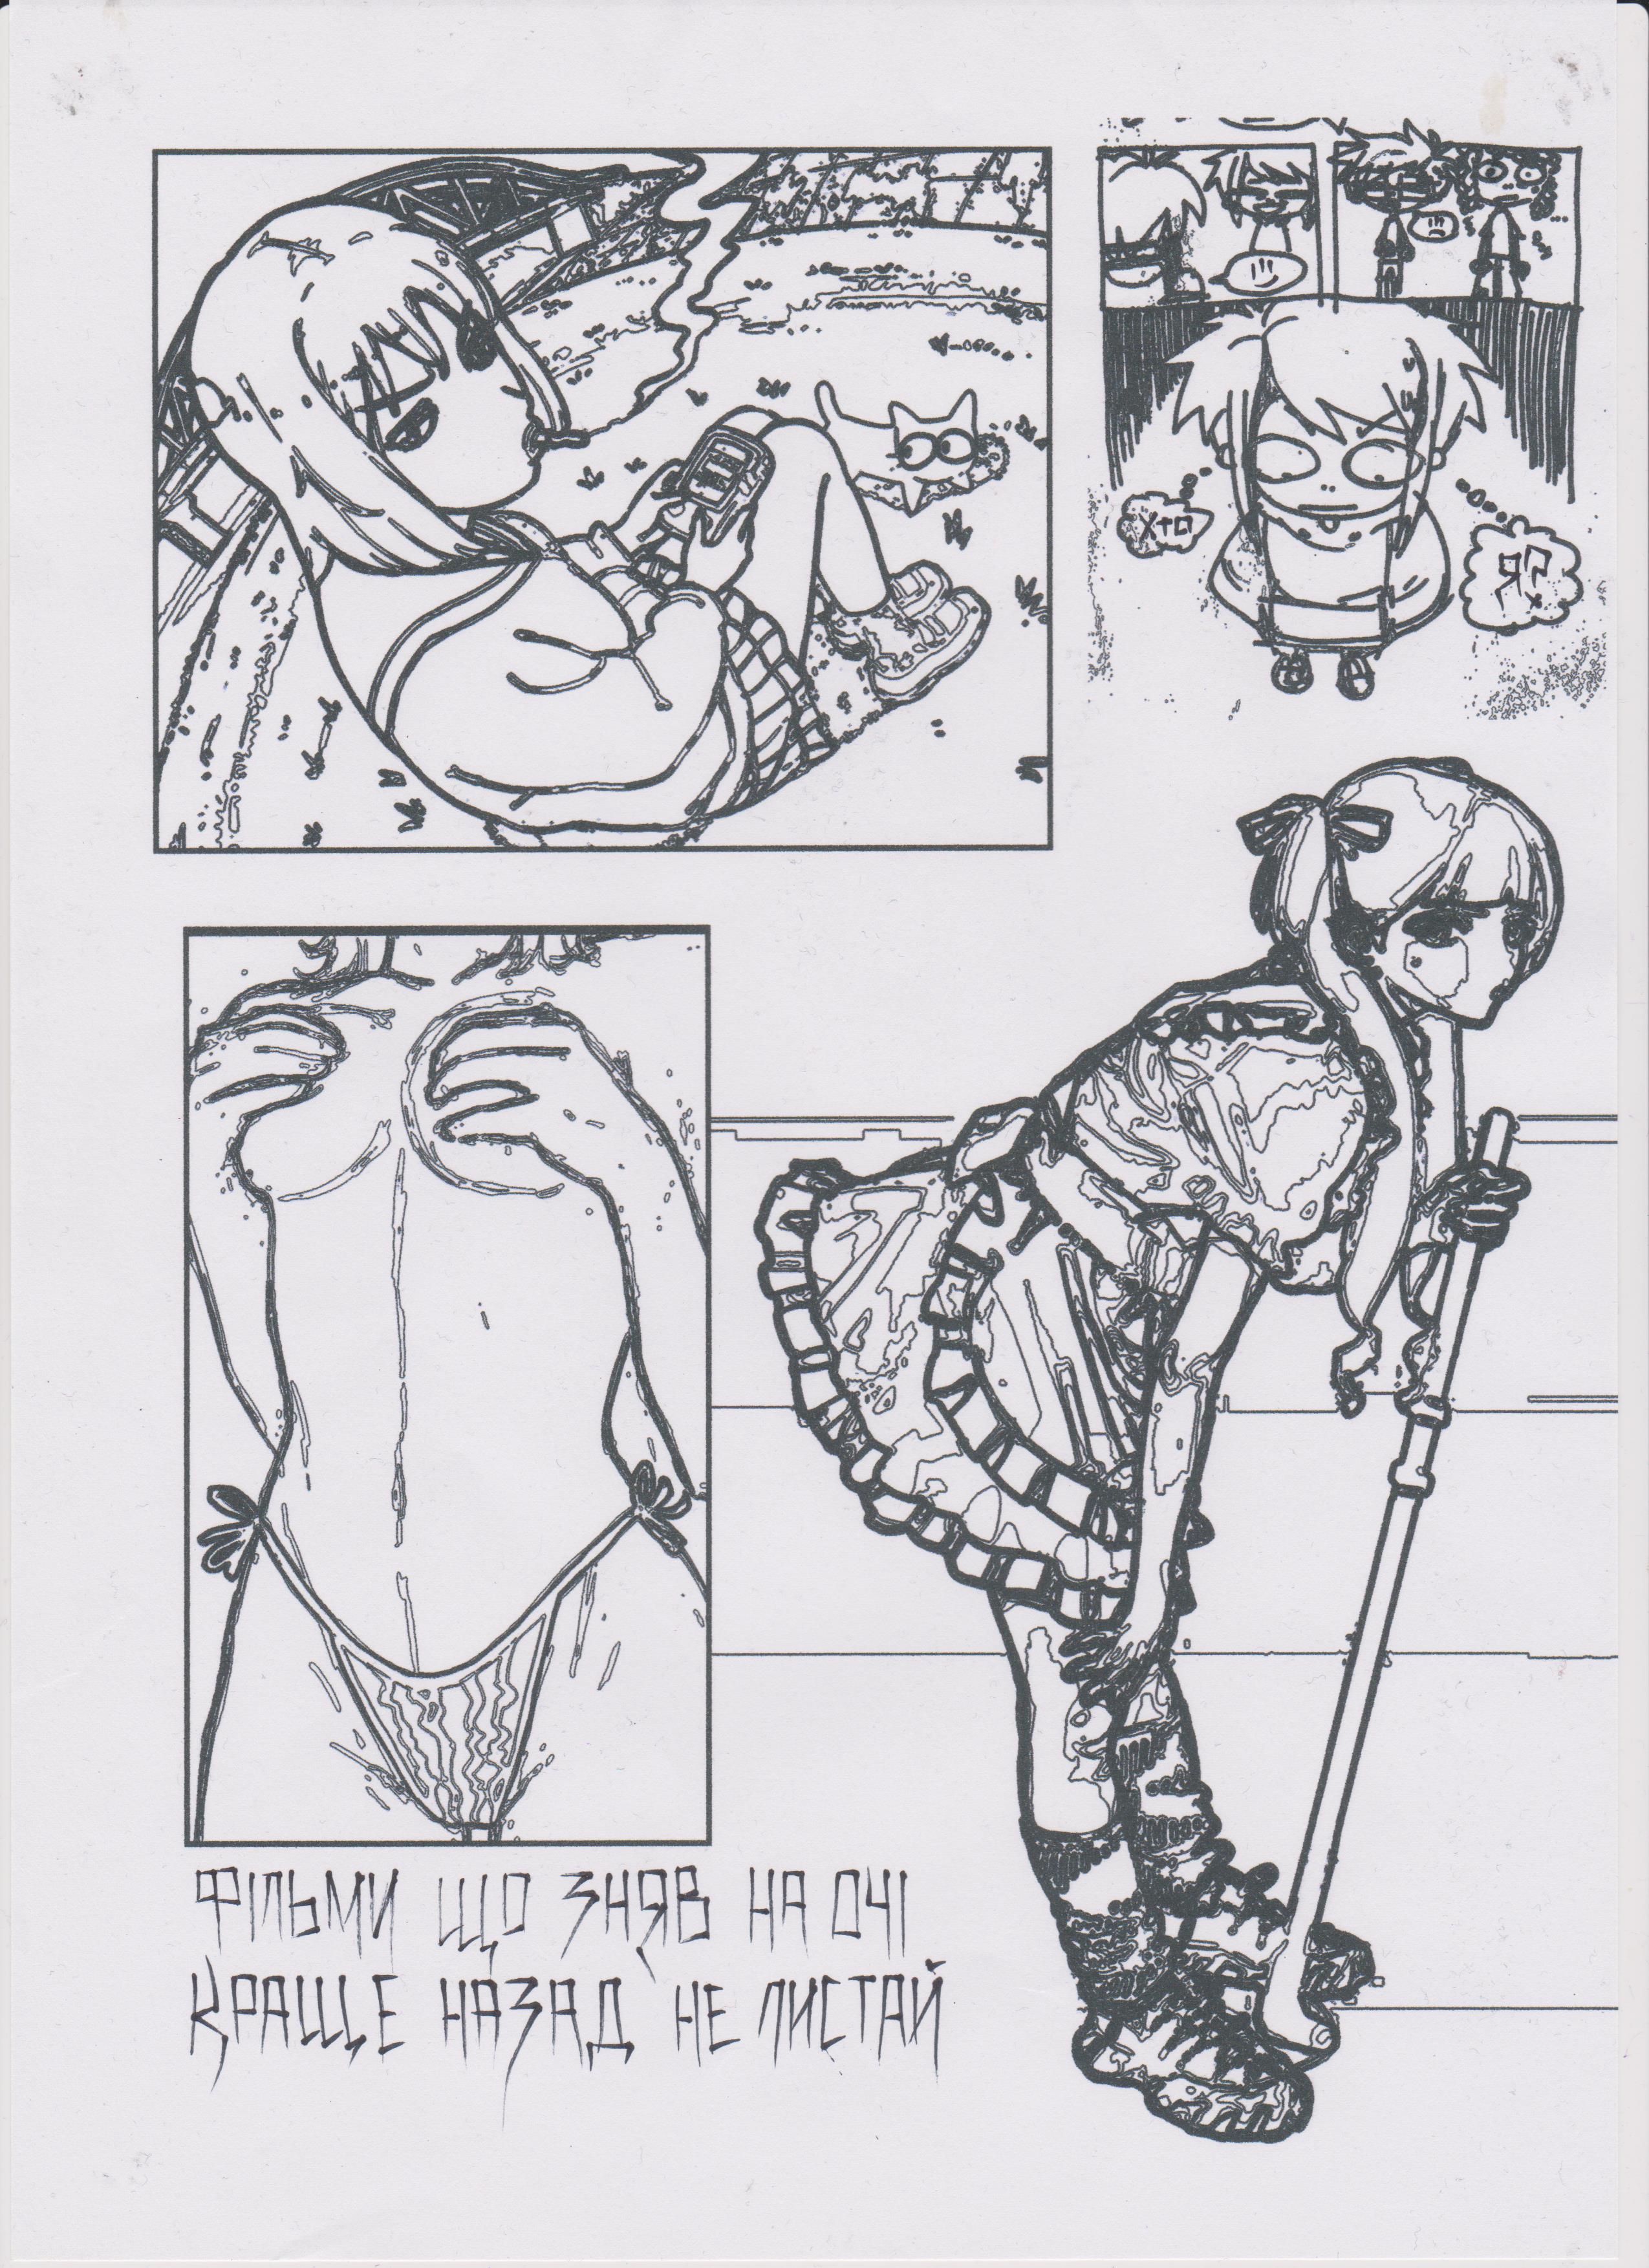 хто
я?
ФІЛЬМИ ЩО ЗНЯВ НА ОЧІ
КРАЩЕ НАЗАД НЕ ЛИСТАЙ